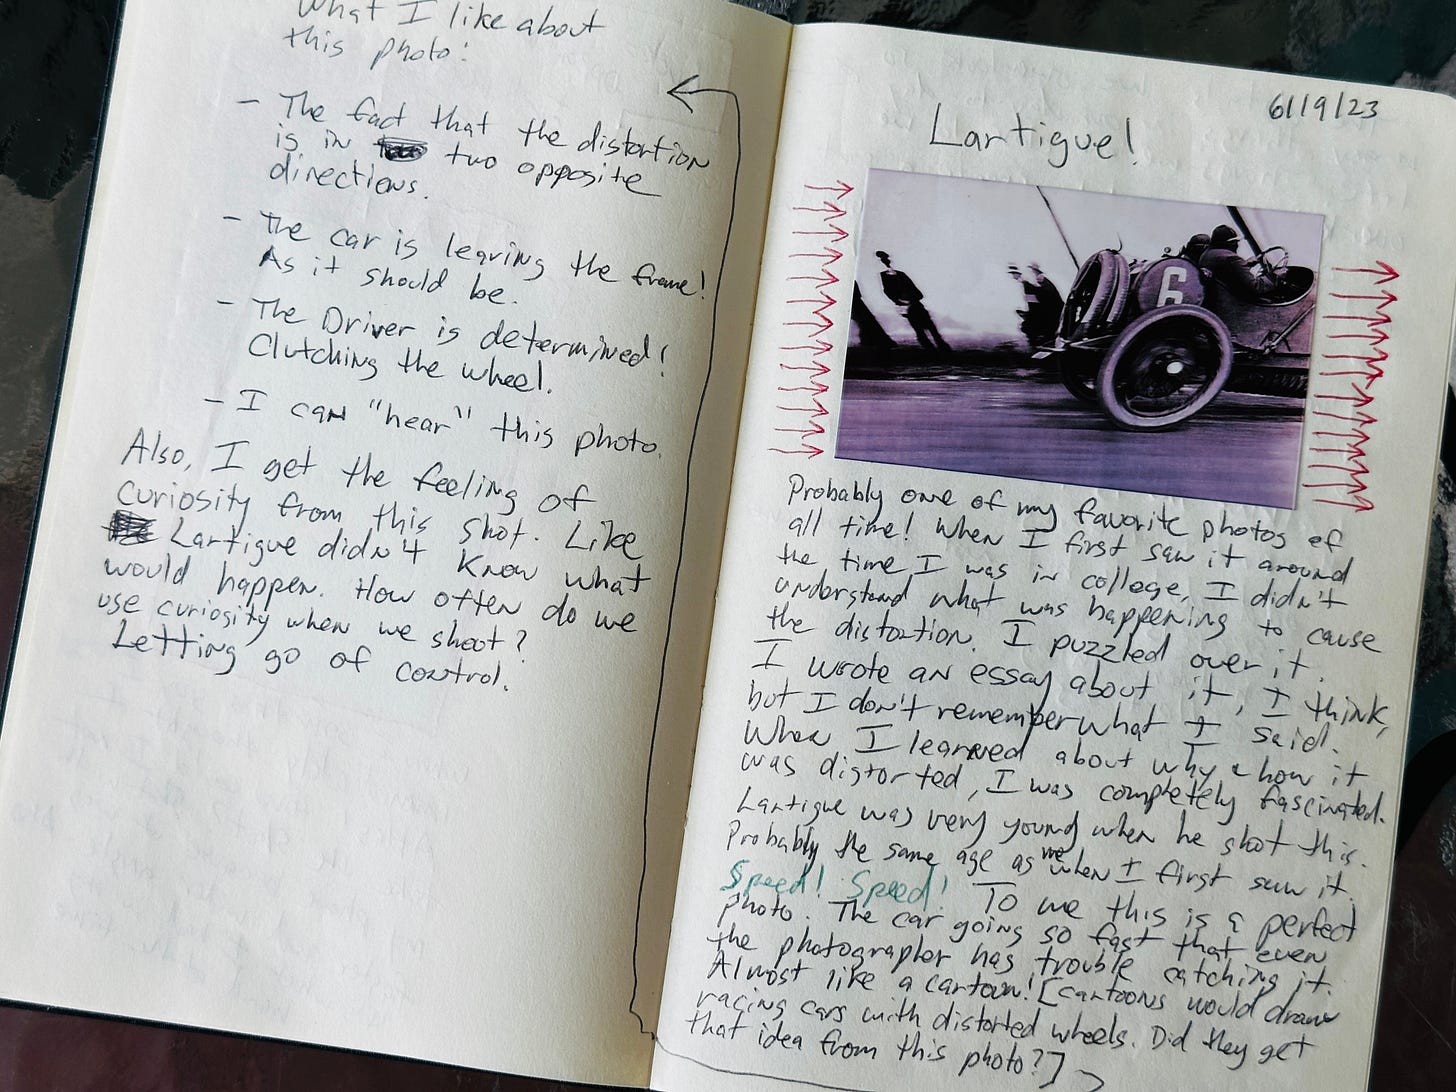 What I like about
this photo:
- The fact that the distortion
is in two opposite
directions.
- The car is leaving the frame!
As it should be.
- The Driver is determined!
Clutching the wheel.
- I can "hear" this photo.
Also, I get the feeling of
curiosity from this shot. Like
Lartigue didn't know what
would happen. How often do we
use curiosity when we shoot?
Letting go of control.
6/19/23
Lartigue!
6
Probably one of my favorite photos of
all time! When I first saw it around
the time I was in college, I didn't
understand what was happening to cause
the distortion. I puzzled over it.
I wrote an essay about it, I think,
but I don't remember what I said.
When I learned about why & how it
was distorted, I was completely fascinated.
Lartigue was very young when he shot this.
Probably the same age as me when I first saw it.
Speed! Speed! To me this is a perfect
photo. The car going so fast that even
the photographer has trouble catching it.
Almost like a cartoon! [cartoons would draw
racing cars with distorted wheels. Did they get
that idea from this photo?]